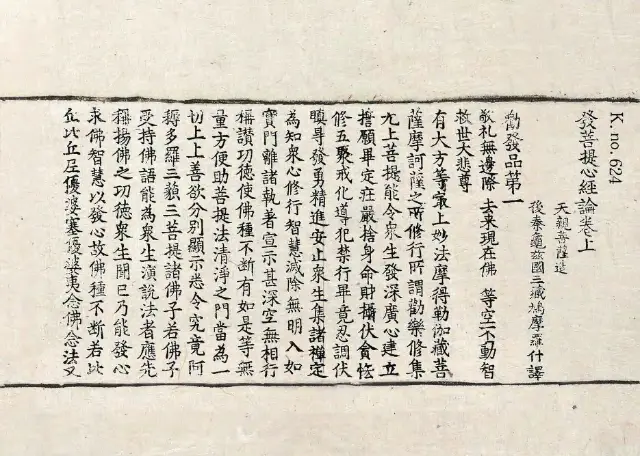 K. no. 624
發菩提心經論卷上
天親菩薩造
後秦龜茲國三藏鳩摩羅什譯
勸發品第一
敬礼無邊際 去來現在佛 等空不動智
救世大悲尊
有大方等㝡上妙法摩得勒伽藏菩
薩摩訶薩之所修行所謂勸樂修集
无上菩提能令衆生發深廣心建立
擔願畢定莊嚴捨身命財攝伏貪恡
修五聚戒化導犯禁行畢竟忍調伏
瞋㝵發勇精進安止衆生集諸禪定
為知衆心修行智慧滅除無明入如
實門離諸執著宣示甚深空無相行
稱讚功徳使佛種不斷有如是等無
量方便助菩提法清淨之門當為一
切上上善欲分別顯示悉令究竟阿
耨多羅三藐三菩提諸佛子若佛子
受持佛語能為衆生演說法者應先
稱揚佛之功徳衆生聞已乃能發心
求佛智慧以發心故佛種不斷若比
丘比丘尼優婆塞優婆夷念佛念法又